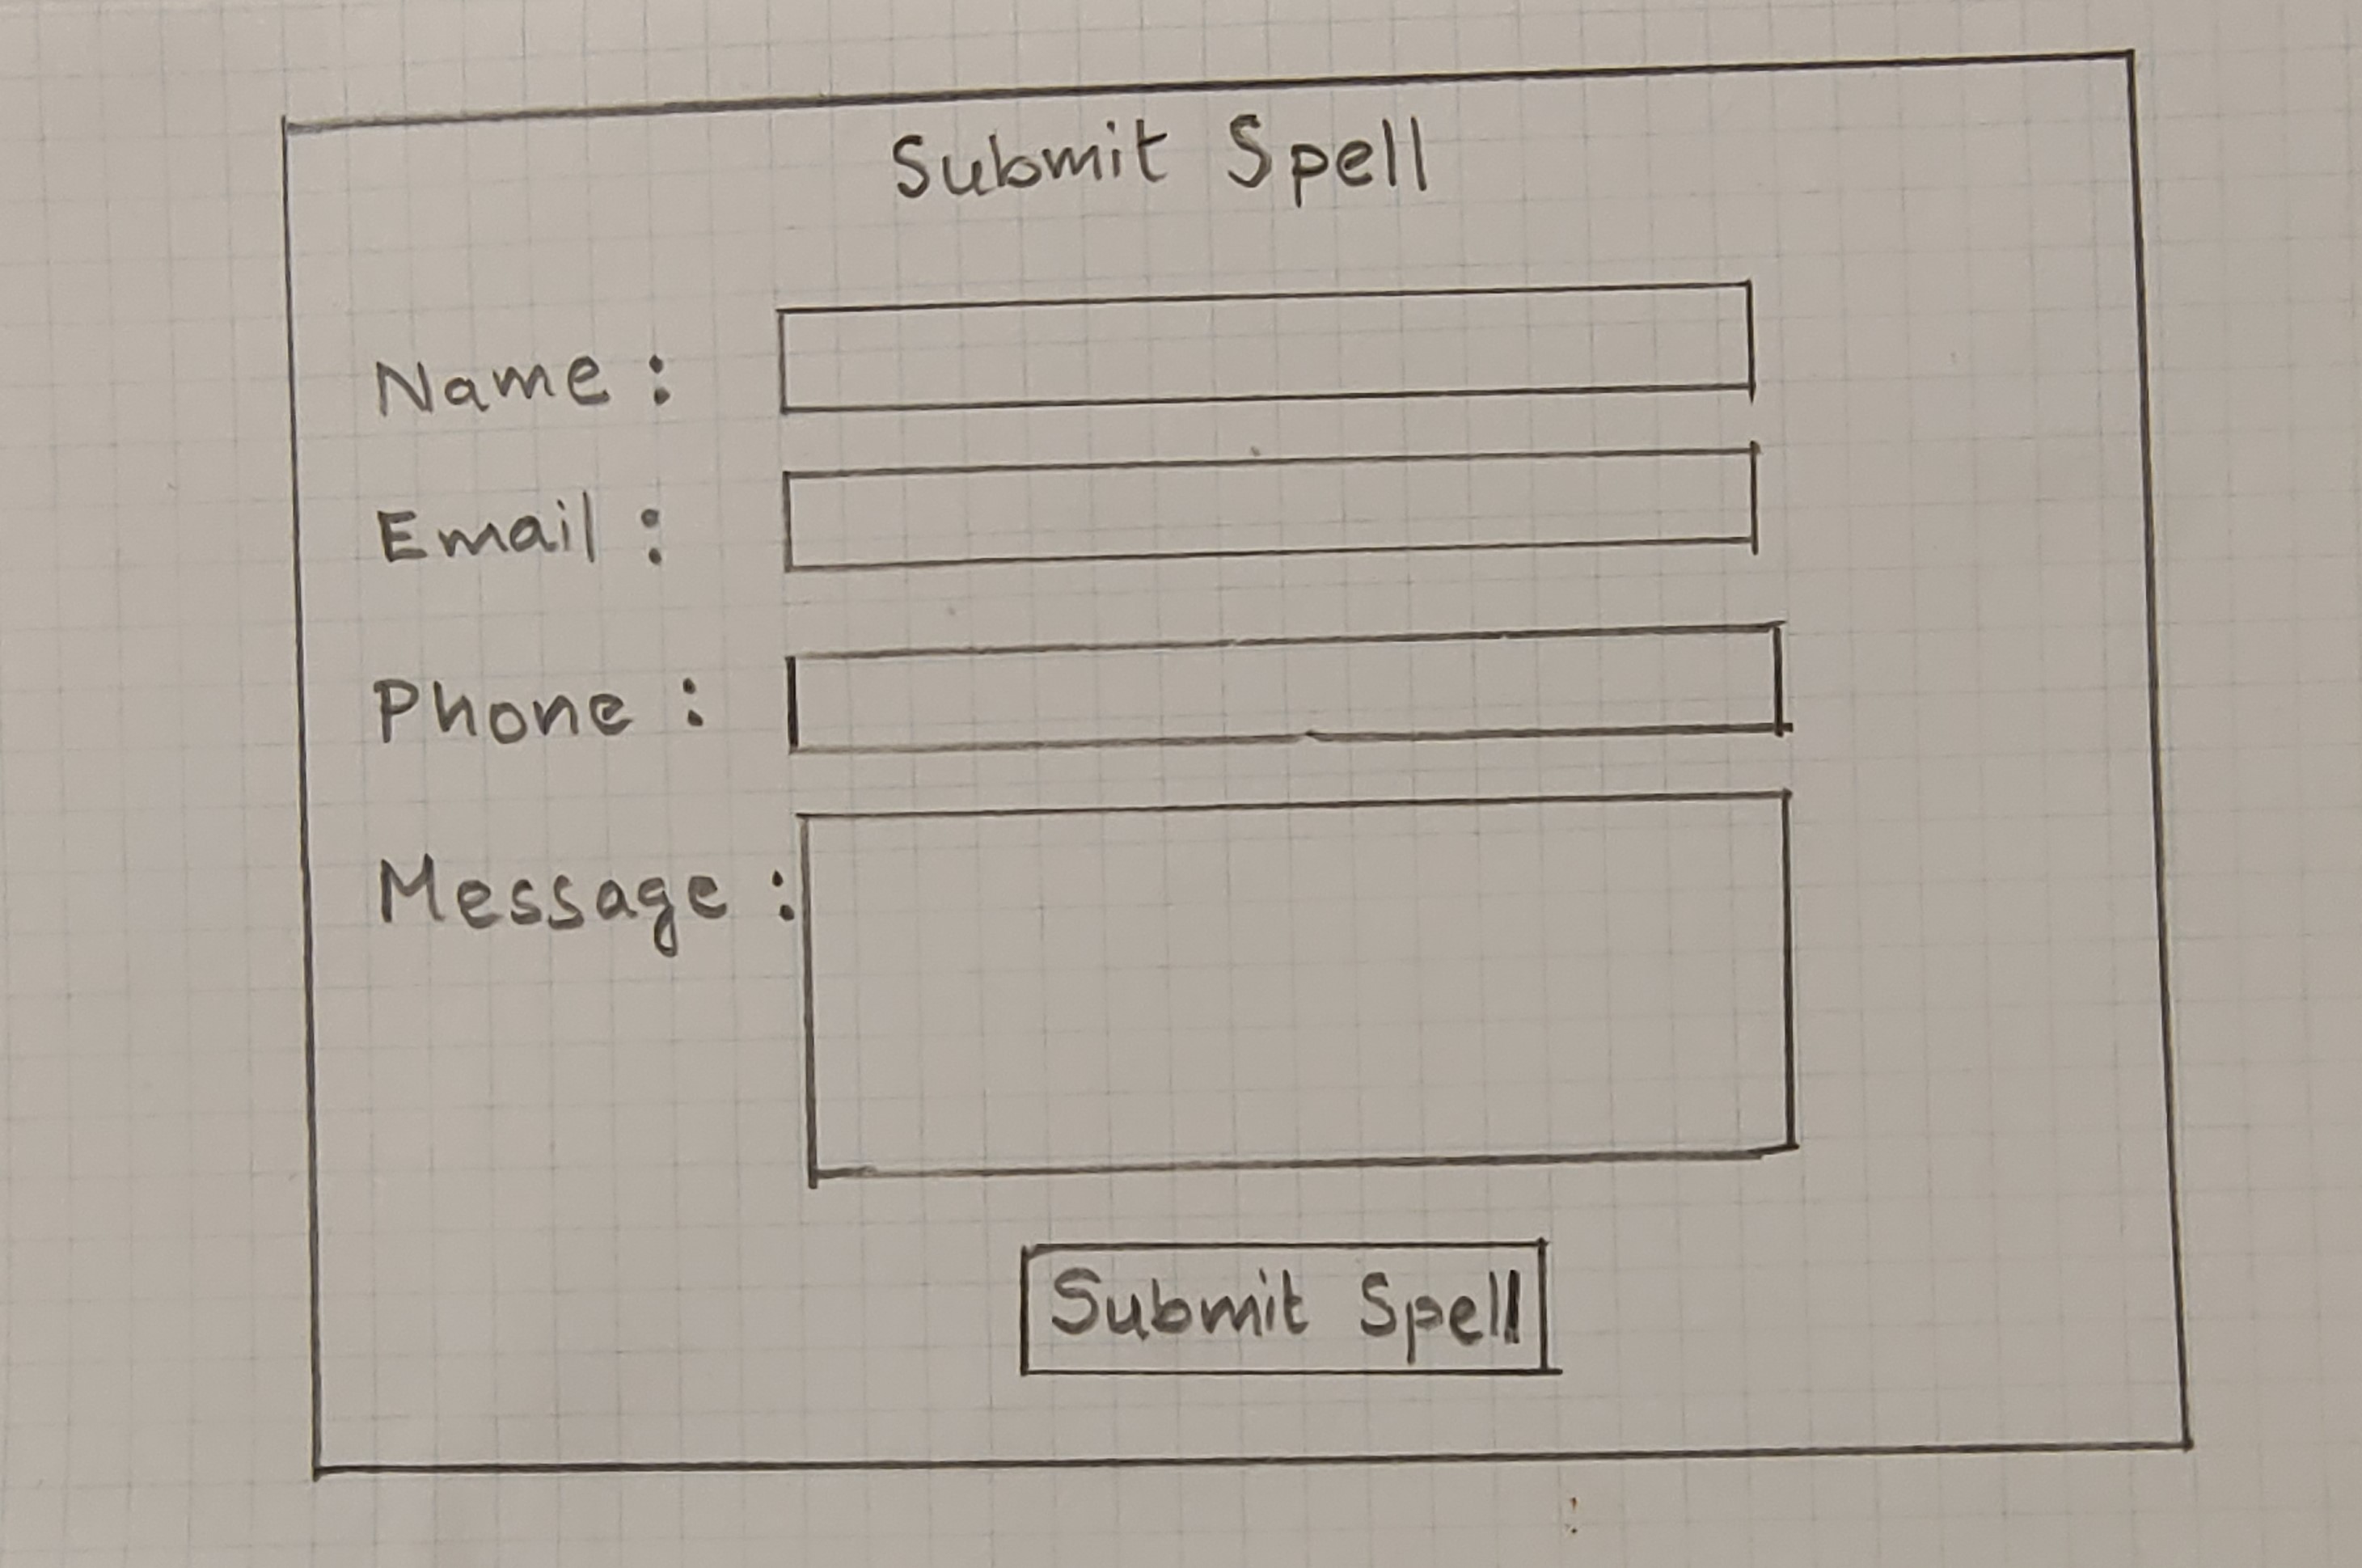 Submit Spell
Name :
Email :
Phone :
Message :
Submit Spell